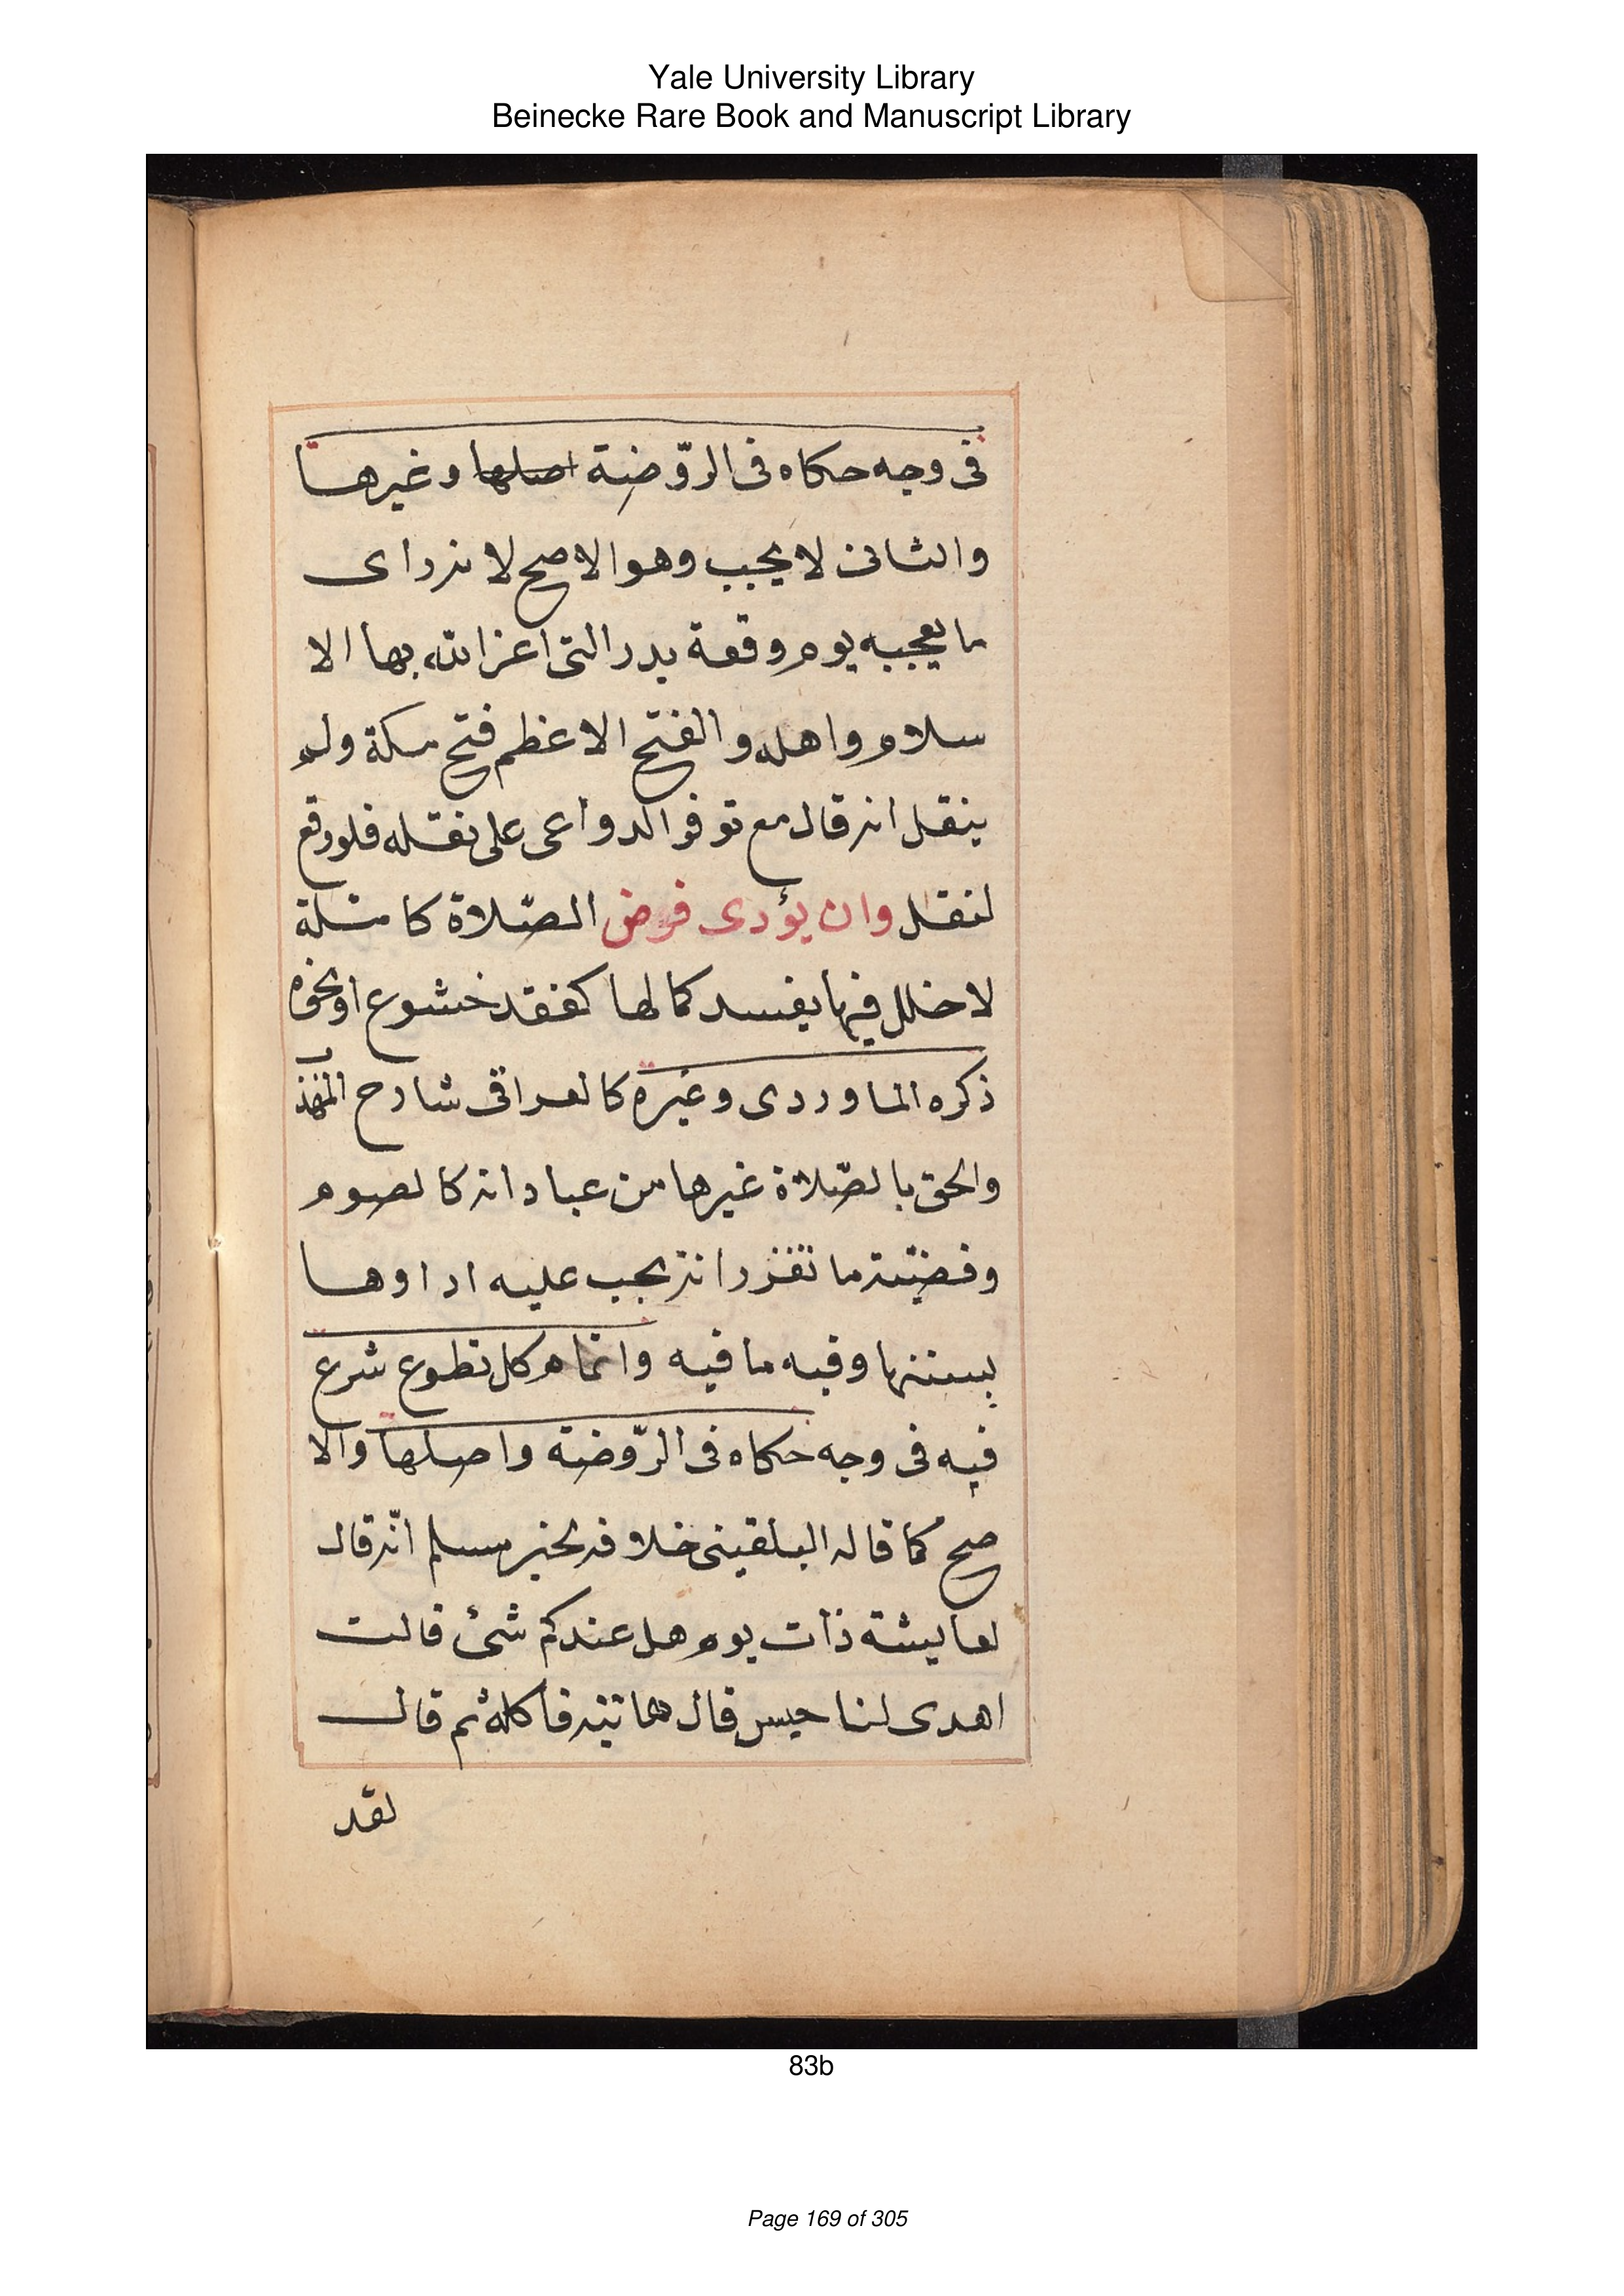 Yale University Library
Beinecke Rare Book and Manuscript Library
فى وجه حكاه فى الروّضة اصلها وغيرها
والثانى لا يجب وهو الاصح لانه راى
ما يعجبه يوم وقعة بدر التى اعز الله بها الا
سلام واهله والفتح الاعظم فتح مكة ولم
ينقل انه قال مع توفر الدواعى على نقله فلو وقع
لنقل وان يؤدى فرض الصّلاة كاملة
لا خلل فيها يفسد كمالها كفقد خشوع او نحوه
ذكره الماوردى وغيره كالعراقى شارح المهذب
والحق بالصّلاة غيرها من عباداته كالصوم
وقضيّته ما تقرر انه يجب عليه اداوها
بسننها وفيه ما فيه واتمام كل تطوع شرع
فيه فى وجه حكاه فى الرّوضة واصلها والا
صح كما قاله البلقينى خلافه لخبر مسلم انّه قال
لعايشة ذات يوم هل عندكم شئ قالت
اهدى لنا حيس قال هاتيه فاكله ثم قال
لقد
83b
Page 169 of 305